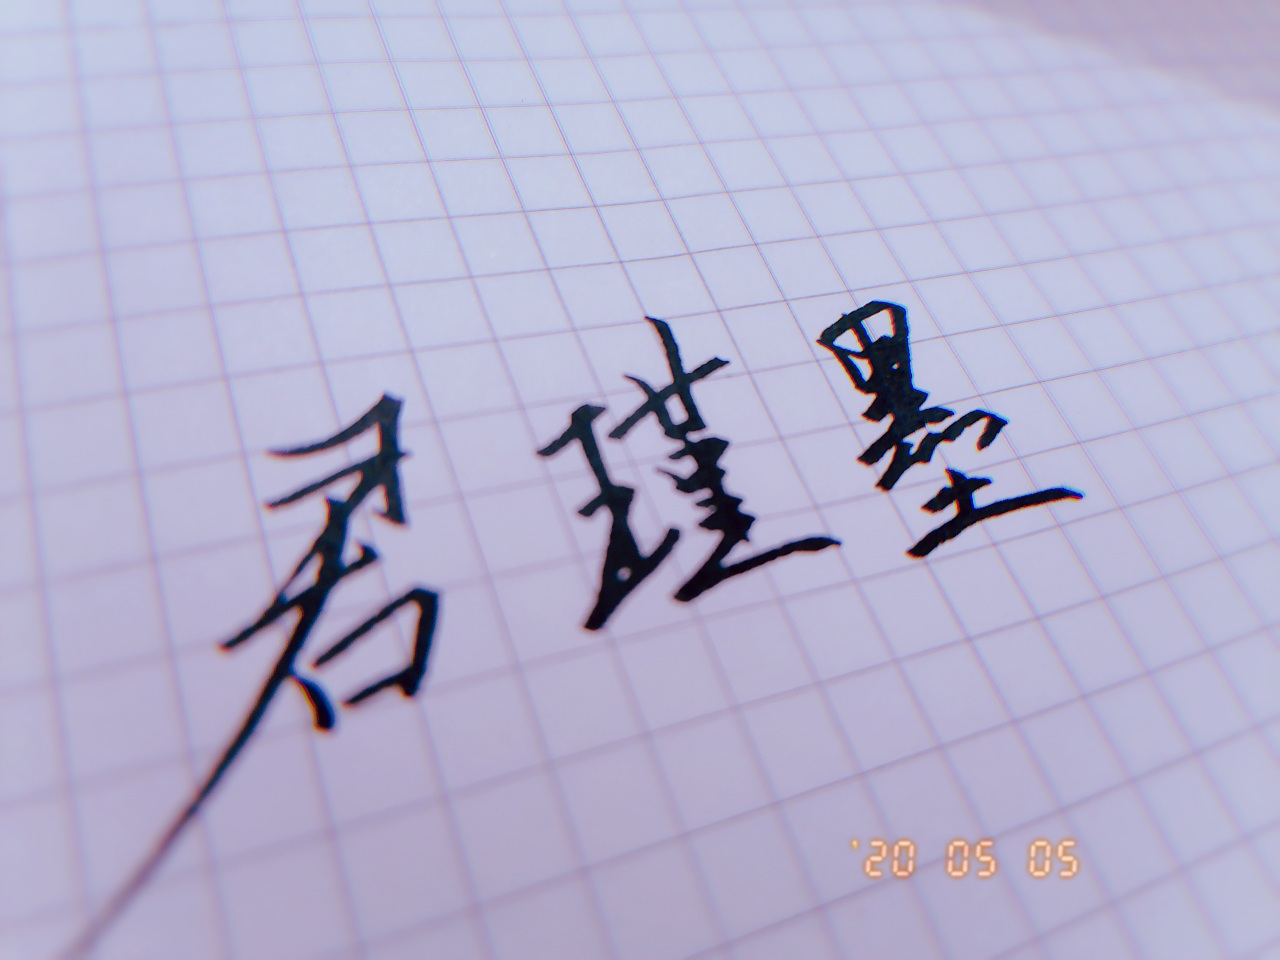 君瑾墨
'20 05 05